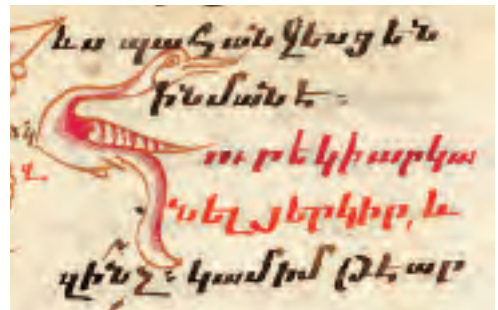 ևս պահանջեսցեն
ինմանէ։
Հուր եկի արկա
նել յերկիր, և
զի՞նչ։ կամիմ թէ ար